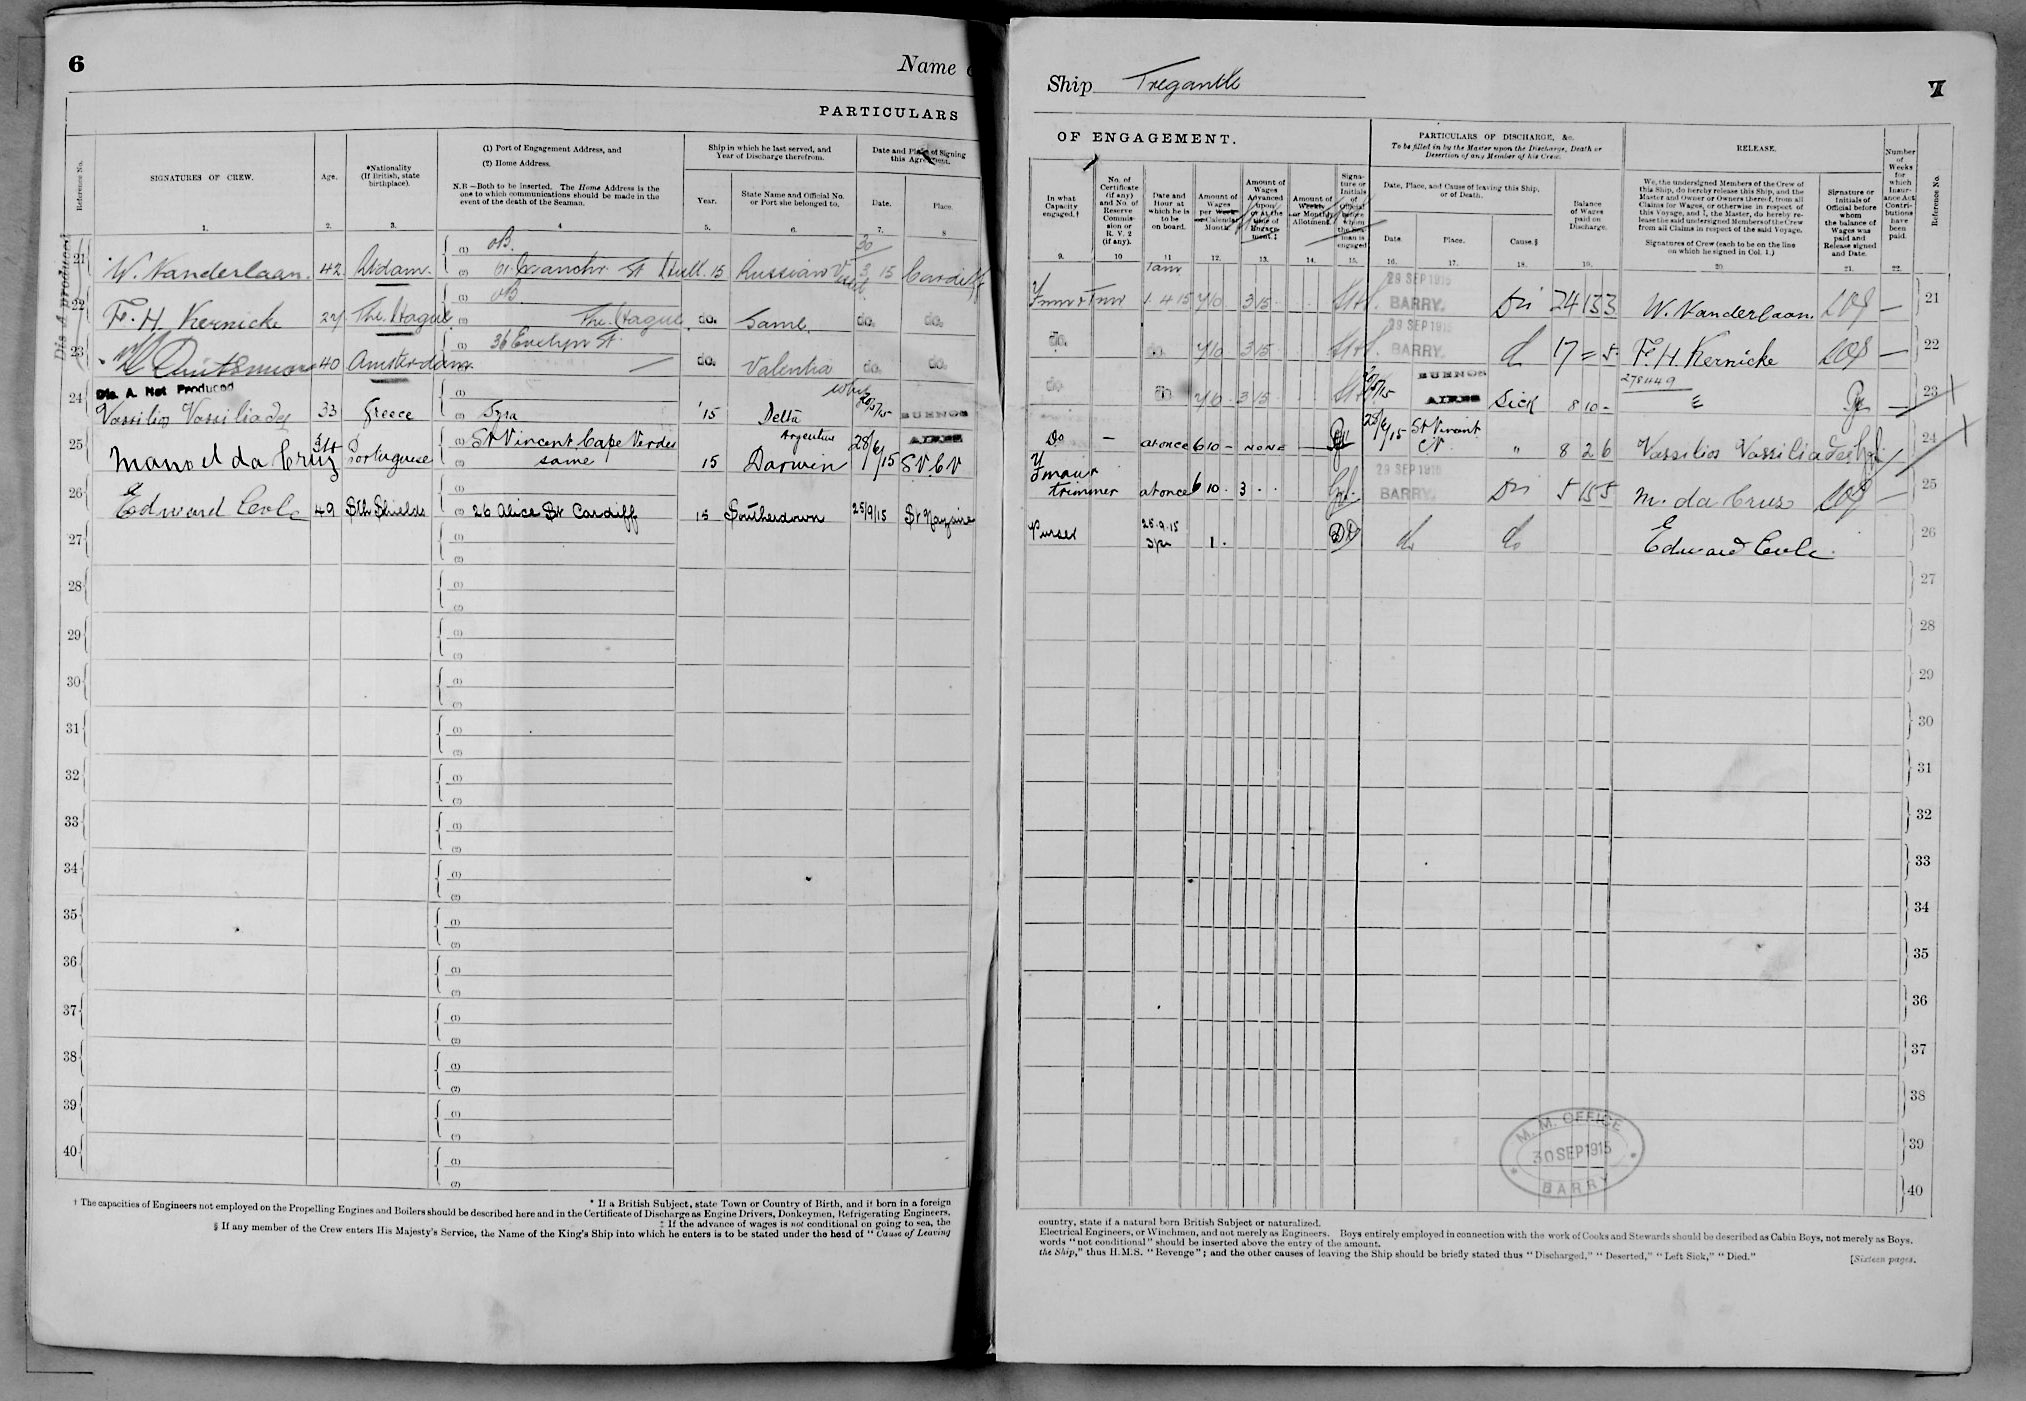 6
Name o
PARTICULARS
Reference No.
SIGNATURES OF CREW.
Age.
*Nationality
(If British, state
birthplace).
(1) Port of Engagement Address, and
(2) Home Address.
N.B.—Both to be inserted. The Home Address is the
one to which communications should be made in the
event of the death of the Seaman.
Ship in which he last served, and
Year of Discharge therefrom.
Year.
State Name and Official No.
or Port she belonged to.
Date and Place of Signing
this Agreement.
Date.
Place.
1. 2. 3. 4 5. 6. 7. 8
Dis A produced
21 W. Vanderlaan. 42 (1) oB.
(2) St Hull. 15 Russian 30/3/15 Cardiff
22 F. H. Kernicke The Hague (1) oB.
(2) The Hague do. Same. do. do.
23 40 Amsterdam (1) 36 Evelyn St.
(2) do. Valentia do. do.
Dis. A. Not Produced
24 Vassilios Vassiliades 33 Greece (1)
(2) Syra '15 Delta 20/5/15 BUENOS AIRES
25 Manoel da Cruz 34 Portuguese (1) St Vincent Cape Verdes
(2) same 15 Argentine Darwin 28/6/15 S.V.C.V
26 Edward Cole 49 Sth Shields (1)
(2) 26 Alice St Cardiff 15 Southerndown 25/9/15 St Nazaire
27 (1)
(2)
28 (1)
(2)
29 (1)
(2)
30 (1)
(2)
31 (1)
(2)
32 (1)
(2)
33 (1)
(2)
34 (1)
(2)
35 (1)
(2)
36 (1)
(2)
37 (1)
(2)
38 (1)
(2)
39 (1)
(2)
40 (1)
(2)
* If a British Subject, state Town or Country of Birth, and if born in a foreign
† The capacities of Engineers not employed on the Propelling Engines and Boilers should be described here and in the Certificate of Discharge as Engine Drivers, Donkeymen, Refrigerating Engineers,
‡ If the advance of wages is not conditional on going to sea, the
§ If any member of the Crew enters His Majesty's Service, the Name of the King's Ship into which he enters is to be stated under the head of "Cause of Leaving
Ship Tregantle
7
OF ENGAGEMENT.
PARTICULARS OF DISCHARGE, &c.
To be filled in by the Master upon the Discharge, Death or
Desertion of any Member of his Crew.
RELEASE.
In what
Capacity
engaged.†
No. of
Certificate
(if any)
and No. of
Reserve
Commis-
sion or
R. V. 2
(if any).
Date and
Hour at
which he is
to be
on board.
Amount of
Wages
per Week
or Calendar
Month.
Amount of
Wages
Advanced
upon
or at the
time of
Engage-
ment.‡
Amount of
Weekly
or Monthly
Allotment.
Signa-
ture or
Initials
of
Official
before
whom
the Sea-
man is
engaged
Date, Place, and Cause of leaving this Ship,
or of Death.
Date.
Place.
Cause.§
Balance
of Wages
paid on
Discharge.
We, the undersigned Members of the Crew of
this Ship, do hereby release this Ship, and the
Master and Owner or Owners thereof, from all
Claims for Wages, or otherwise in respect of
this Voyage, and I, the Master, do hereby re-
lease the said undersigned Members of the Crew
from all Claims in respect of the said Voyage.
Signatures of Crew (each to be on the line
on which he signed in Col. 1.)
Signature or
Initials of
Official before
whom
the balance of
Wages was
paid and
Release signed
and Date.
Number
of
Weeks
for
which
Insur-
ance Act
Contri-
butions
have
been
paid.
Reference No.
9. 10 11 12. 13. 14. 15. 16. 17. 18. 19. 20. 21. 22.
1. 4 15 3 15 29 SEP 1915 BARRY. Dis 24 13 3 W. Vanderlaan. — 21
do. do. 3 15 29 SEP 1915 BARRY. 17 = 5. F. H. Kernicke — 22
do. do. 3 15 20/5/15 BUENOS AIRES Sick 8 10 - 23
Do — at once 6 10 – NONE — 28/6/15 St Vincent CV. " 8 2 6 Vassilios Vassiliades 24
Fman & trimmer at once 6 10 . 3 . . 29 SEP 1915 BARRY. Dis 5 15 5 M. da Cruz — 25
Purser 25.9.15 1 . do do Edward Cole 26
27
28
29
30
31
32
33
34
35
36
37
38
39
40
M. M. OFFICE
30 SEP 1915
BARRY
country, state if a natural born British Subject or naturalized.
Electrical Engineers, or Winchmen, and not merely as Engineers. Boys entirely employed in connection with the work of Cooks and Stewards should be described as Cabin Boys, not merely as Boys.
words "not conditional" should be inserted above the entry of the amount.
the Ship," thus H.M.S. "Revenge"; and the other causes of leaving the Ship should be briefly stated thus "Discharged," "Deserted," "Left Sick," "Died."
[Sixteen pages.